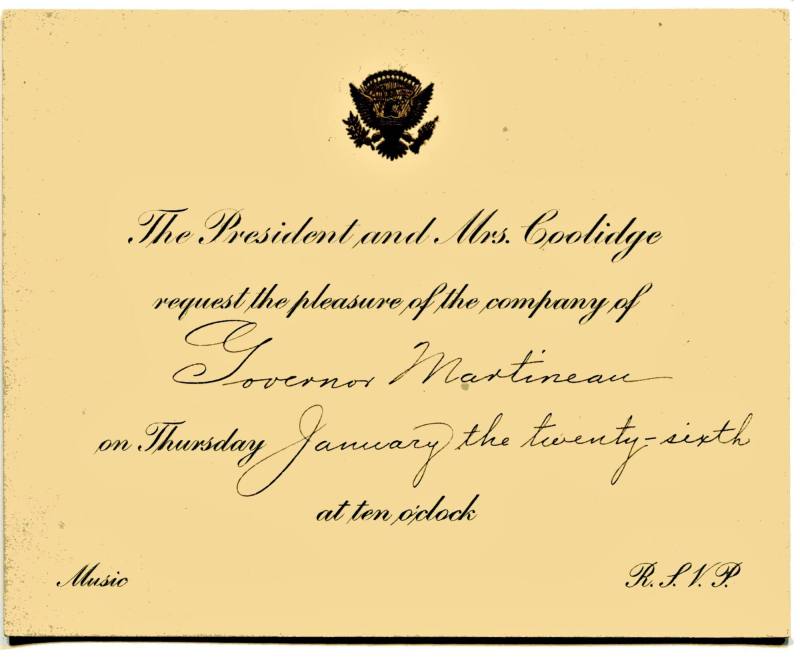 The President and Mrs. Coolidge
request the pleasure of the company of
Governor Martineau
on Thursday January the twenty-sixth
at ten o'clock
Music
R. S. V. P.